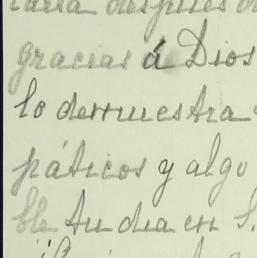 carta después de
gracias á Dios
lo demuestra
páticos y algo
ble tu dia en S.